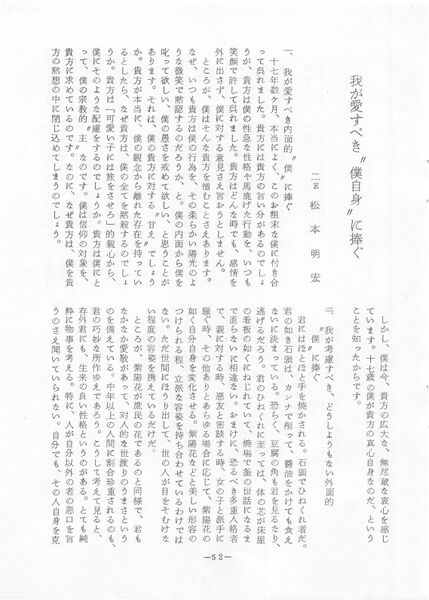 我が愛すべき〝僕自身〟に捧ぐ
二E 松本明宏
一、我が愛すべき内面的〝僕〟に捧ぐ
十七年数ヶ月、本当によく、このお粗末な僕に付き合
って呉れました。貴方には貴方の言い分があるのでしょ
うが、貴方は僕の性急な性格や馬鹿げた行動を、いつも
笑顔で許して呉れました。貴方はどんな時でも、感情を
外に出さず、僕に対する意見さえ言おうとしません。
ところが、僕はそんな貴方を憎むことさえあります。
なぜ、いつも貴方は僕の行為を、その柔らかい陽光のよ
うな微笑で黙認するのだろうか、と。僕の内面から僕を
叱って欲しい、僕の愚さを戒めて欲しい、と思うことが
あります。それは、僕の貴方に対する〝甘え〟でしょう
か。貴方が本当に、僕の観念から離れた存在を持ってい
るとしたら、なぜ貴方は、僕の全てを黙殺するのでしょ
うか。貴方は「可愛い子には旅をさせろ」的親心から、
僕にそのような配慮をするのでしょうか。貴方は僕にと
って、僕の宗教的〝主〟なのです。僕は信仰の対象を、
貴方に求めているのです。なのに、なぜ貴方は、僕を貴
方の黙想の中に閉じ込めてしまうのでしょう。
しかし、僕は今、貴方の広大な、無尽蔵な真心を感じ
ています。十七歳の僕が貴方の真心自身なのだ、という
ことを知ったからです。
二、我が考慮すべき、どうしようもない外面的
〝僕〟に捧ぐ
君にはほとほと手を焼かされる。石頭でひねくれ者だ。
君の如き石頭は、カンナで削って、醬油をかけても食え
ないに決まっている。恐らく、豆腐の角も君を見るなり、
逃げるだろう。君のひねくれに至っては、体の芯が床屋
の看板の如くにねじれていて、焼場で釜の世話になるま
で直らないに相違ない。おまけに、恐るべき多重人格者
で、親に対する時、悪友と密談する時、女の子と派手に
騒ぐ時、その他ありとあらゆる場合に応じて、紫陽花の
如く自分自身を変化させる。紫陽花などと美しい形容の
つけられる程、立派な容姿を持ち合わせているわけでは
ない。ただ世間にほうり出して、世の人が目をそむけな
い程度の容姿を携えているだけだ。
ところが、紫陽花が庶民の花であるのと同様で、君も
なかなか愛敬があって、対人的な世渡りのうまさという
のを備えている。中年以上の人間に割合珍重されるのも、
君の巧妙な所作ゆえであろう。こうして考えて見ると、
存外君にも、生来の良い性格というのがある。とても純
粋に物事を考える。特に、人が自分以外の者の悪口を言
うのさえ聞いていられない。自分でも、その人自身を克
—52—